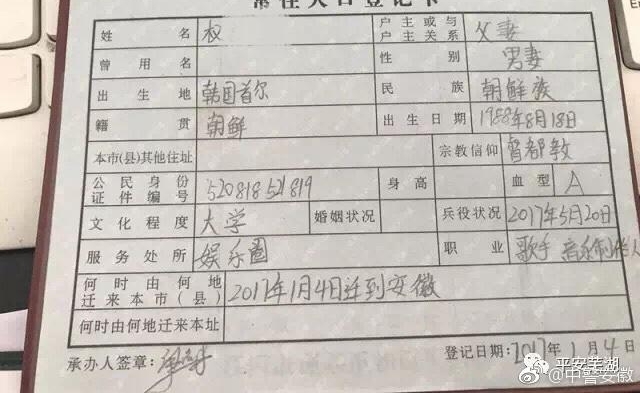 常住人口登记卡
姓名 权 户主或与户主关系 父妻
曾用名 性别 男妻
出生地 韩国首尔 民族 朝鲜族
籍贯 朝鲜 出生日期 1988年8月18日
本市(县)其他住址 宗教信仰 督都教
公民身份证件编号 520818521819 身高 血型 A
文化程度 大学 婚姻状况 兵役状况 2017年5月20日
服务处所 娱乐圈 职业 歌手 音乐制作人
何时由何地迁来本市(县) 2017年1月4日迁到安徽
何时由何地迁来本址
承办人签章: 登记日期:2017年1月4日
平安芜湖
@中警安徽